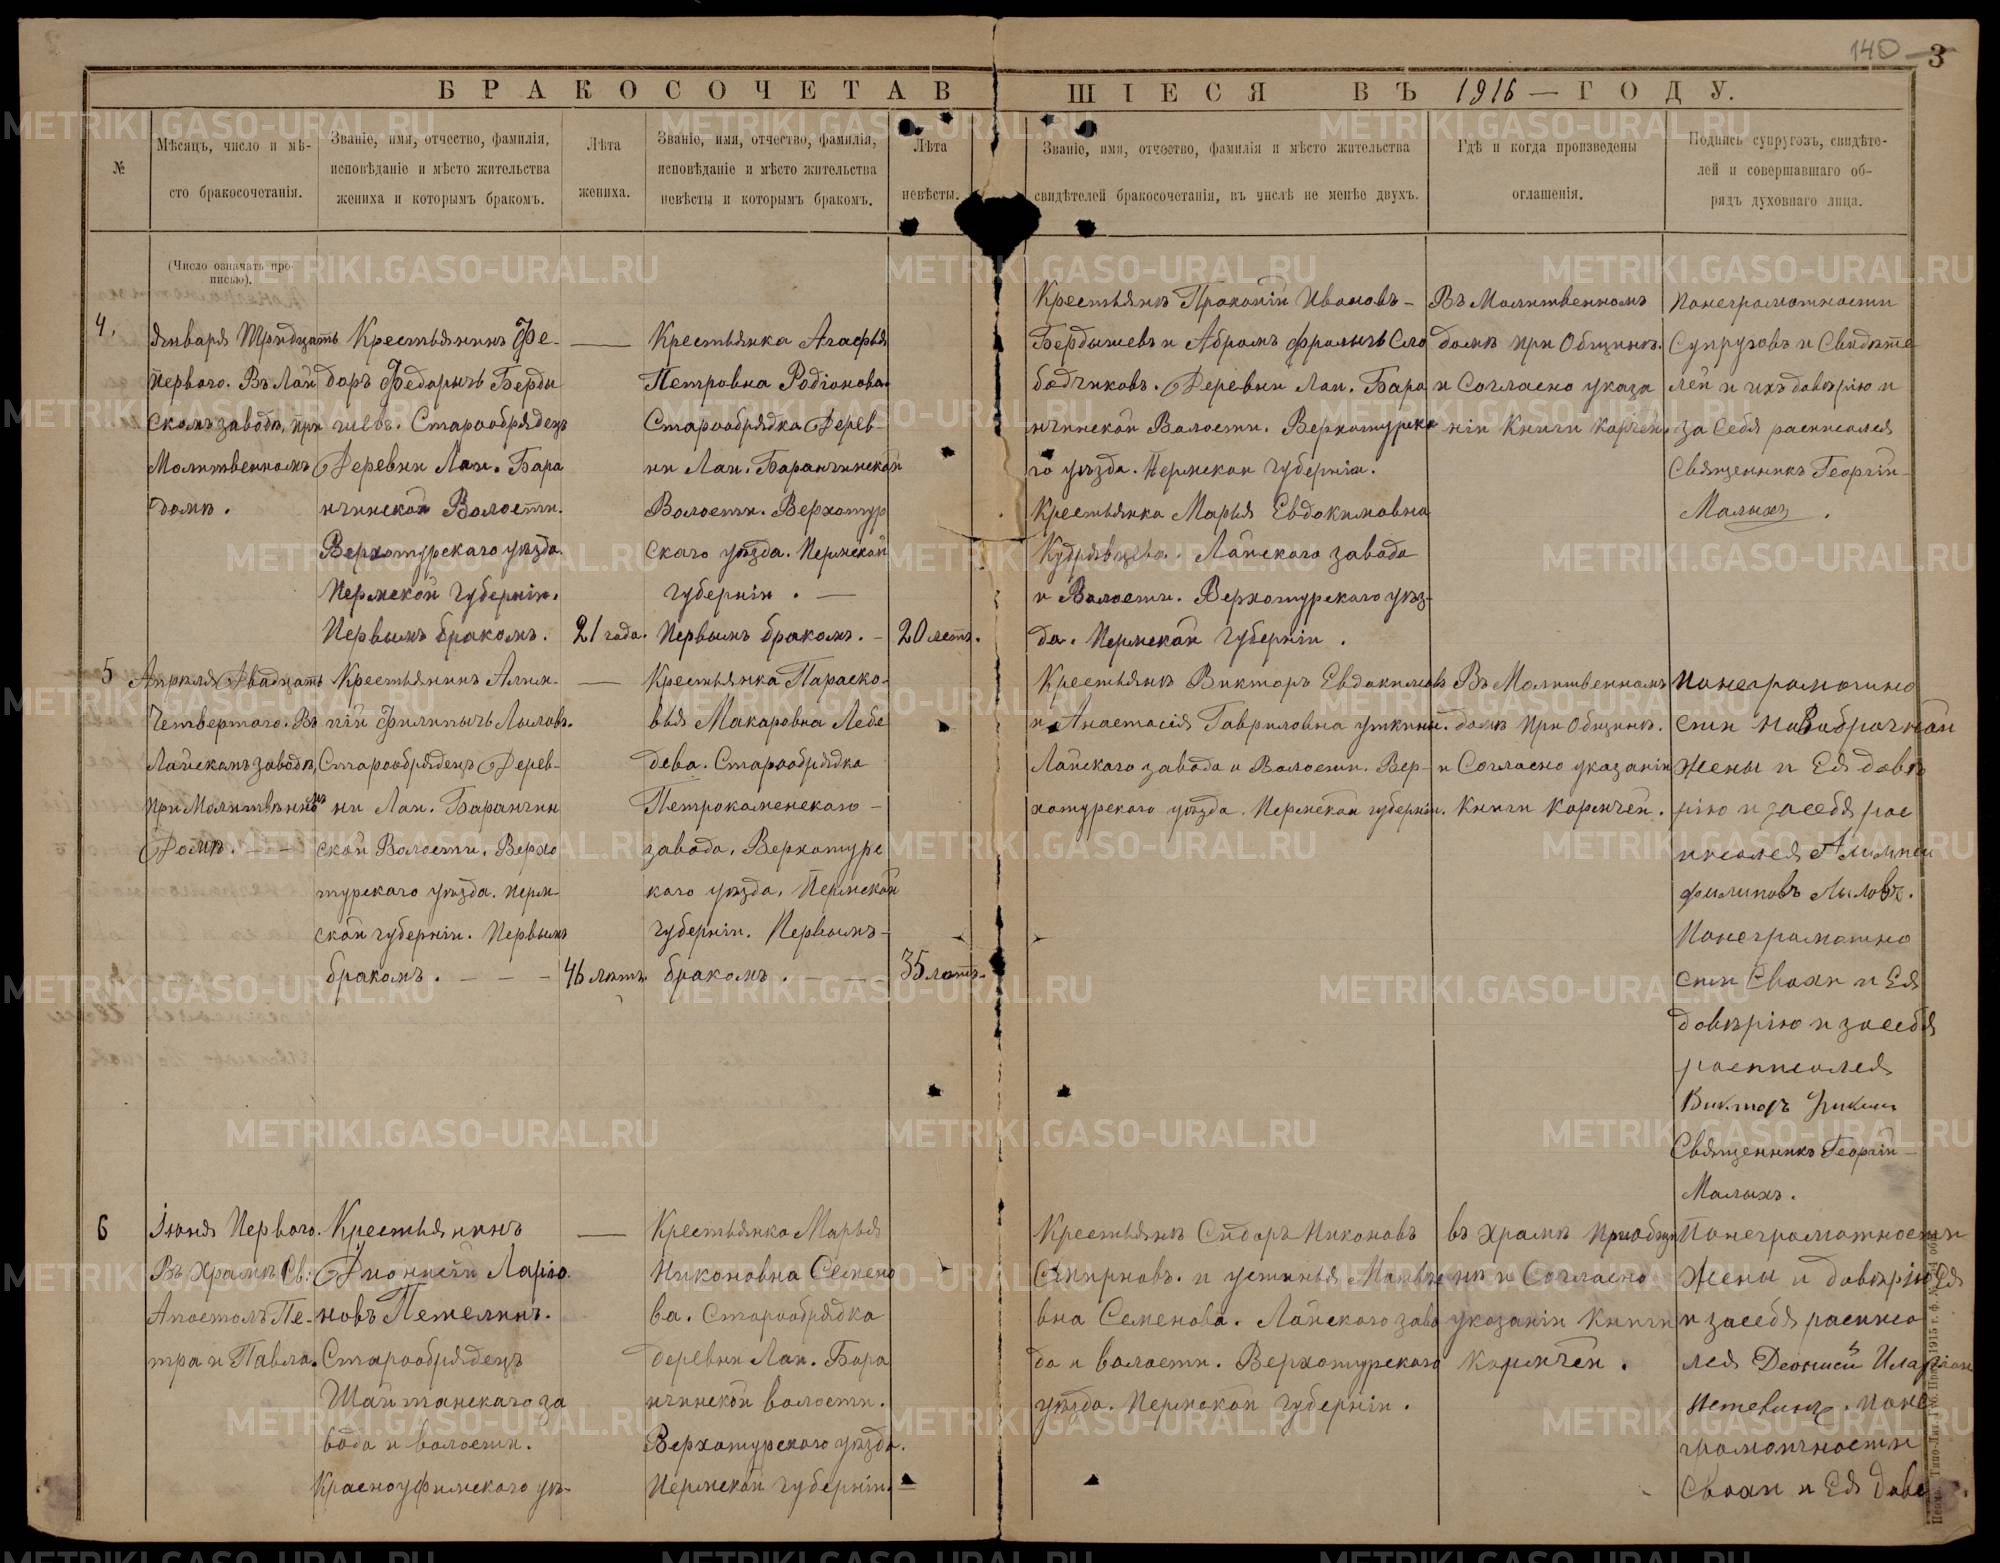 140 3
БРАКОСОЧЕТАВШІЕСЯ ВЪ 1916 — ГОДУ.
№
Мѣсяцъ, число и мѣ-
сто бракосочетанія.
Званіе, имя, отчество, фамилія,
исповѣданіе и мѣсто жительства
жениха и которымъ бракомъ.
Лѣта
жениха.
Званіе, имя, отчество, фамилія,
исповѣданіе и мѣсто жительства
невѣсты и которымъ бракомъ.
Лѣта
невѣсты.
Званіе, имя, отчество, фамилія и мѣсто жительства
свидѣтелей бракосочетанія, въ числѣ не менѣе двухъ.
Гдѣ и когда произведены
оглашенія.
Подпись супруговъ, свидѣте-
лей и совершавшаго об-
рядъ духовнаго лица.
(Число означать про-
писью).
4.
Января Тридцать
Перваго. Въ Лай
скомъ заводѣ, при
Молитвенномъ
домѣ.
Крестьянинъ Фе-
доръ Федорычъ Берды
шевъ. Старообрядецъ
Деревни Лаи. Бара
нчинской Волости.
Верхотурскаго уѣзда.
Пермской Губерніи.
Первымъ бракомъ.
21 года.
Крестьянка Агафья
Петровна Родіонова.
Старообрядка Дерев-
ни Лаи. Баранчинской
Волости. Верхотур
скаго уѣзда. Пермской
Губерніи. —
Первымъ бракомъ. —
20 летъ.
Крестьянѣ Прокопій Ивановъ-
Бердышевъ и Абрамъ Фролычъ Сло
бодчиковъ. Деревни Лаи. Бара
нчинской Волости. Верхотурска
го уѣзда. Пермской Губерніи.
Крестьянка Марья Евдокимовна
Кудрявцева. Лайскаго завода
и Волости. Верхотурскаго уѣз-
да. Пермской Губерніи.
Въ Молитвенномъ
домѣ при Общинѣ.
и Согласно указа
ніи Книги Кормчей.
Понеграмотности
Супруговъ и Свидѣте
лей и ихъ довѣрію и
за себя расписался
Священникъ Георгій
Малыхъ.
5
Апреля Двадцать
Четвертаго. Въ
Лайскомъ заводѣ,
при Молитвѣнномъ
Домѣ. — —
Крестьянинъ Алим-
пій Филипычъ Лыловъ.
Старообрядецъ Дерев-
ни Лаи. Баранчин
ской Волости. Верхо
турскаго уѣзда. Перм-
ской губерніи. Первымъ
бракомъ. — — —
46 лѣтъ
Крестьянка Параско-
вья Макаровна Лебе
дева. Старообрядка
Петрокаменскаго —
завода, Верхотурс
каго уѣзда, Пермской
Губерніи. Первымъ-
бракомъ. — —
35 летъ.
Крестьянѣ Викторъ Евдокимовъ
и Анастасія Гавриловна Уткины.
Лайскаго завода и Волости. Вер-
хотурскаго уѣзда. Пермской губерніи.
Въ Молитвенномъ
домѣ при Общинѣ.
и Согласно указаніи
Книги Кормчей.
Понеграмотно
сти Новобрачной
Жены и Ея довѣ
рію и засебя рас
писался Алимпей
Филиповъ Лыловъ.
Понеграмотно
сти Своей и Ея
довѣрію и засебя
росписался
Викторъ Уткин
Священникъ Георгій —
Малыхъ.
6
Іюня Перваго.
Въ Храмѣ Св:
Апостолъ Пе-
тра и Павла.
Крестьянинъ
Дионисій Ларіо
новъ Петелинъ.
Старообрядецъ
Шайтанскаго за
вода и волости.
Красноуфимскаго уѣ-
Крестьянка Марья
Никоновна Семено
ва. Старообрядка
деревни Лаи. Бара
нчинской волости.
Верхотурскаго уѣзда.
Пермской губерніи.
Крестьянѣ Сидоръ Никоновъ
Смирновъ. и Устинья Матвѣе
вна Семенова. Лайскаго заво
да и волости. Верхотурскаго
уѣзда. Пермской Губерніи.
въ Храмѣ Приобщи
нѣ и Согласно
указаніи Книги
Кормчей.
Понеграмотности
Жены и довѣрію Ея
и засебя расписо
лся Деонисій Иларіон
Петелинъ. поне
грамотности
Своей и Ея дове